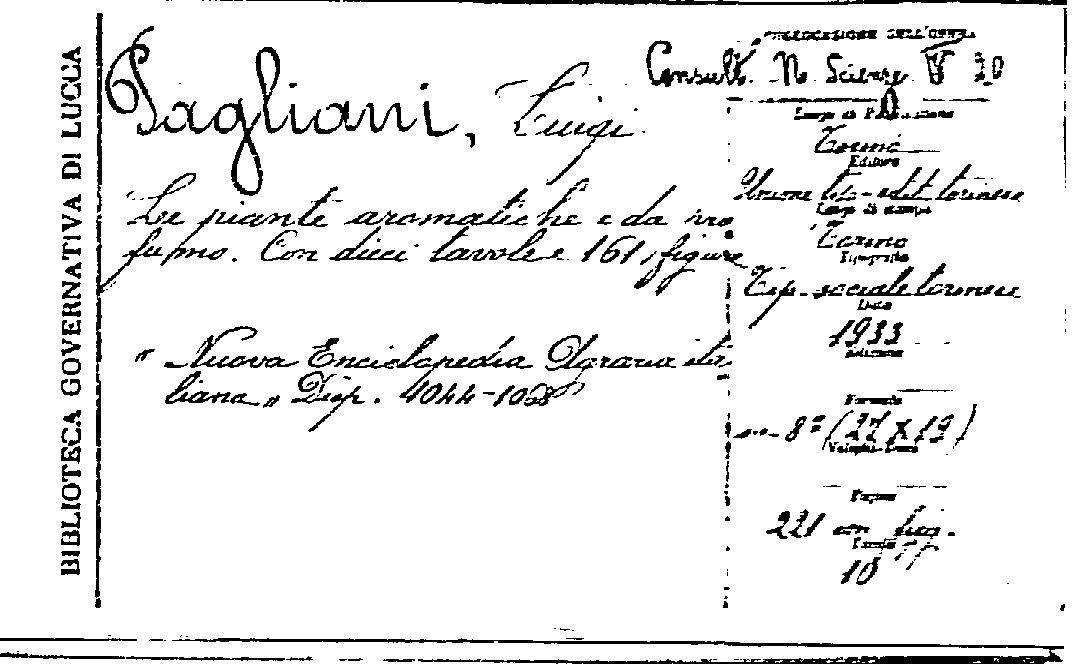 BIBLIOTECA GOVERNATIVA DI LUCCA
Pagliani, Luigi.
Le piante aromatiche e da pro
fumo. Con dieci tavole e 161 figure
" Nuova Enciclopedia Agraria ita
liana " Disp.
COLLOCAZIONE DELL'OPERA
Consult. No Scienze V 30
Luogo di Pubblicazione
Torino
Editore
Unione tip-edit. torinese
Luogo di stampa
Torino
Tipografia
Tip. sociale torinese
Data
1933
Edizione
Formato
8° (27 x 19)
Pagine
221 con figg.
Tavole
10